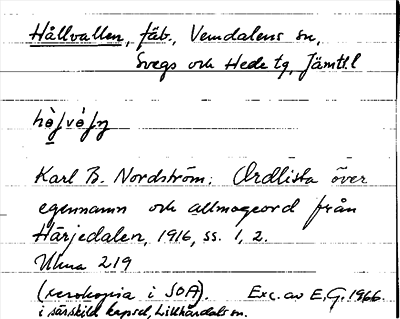 Hållvallen, fäb., Vemdalens sn,
Svegs och Hede tg, Jämtl. l
Karl B. Nordström: Ordlista över
egennamn och allmogeord från
Härjedalen, 1916, ss. 1, 2.
Uma 219
(xerokopia i SOA). Exc. av E. G. 1966.
i särskild kapsel, Lillhärdals sn.